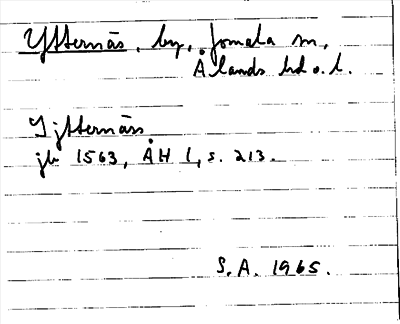 Ytternäs, by, Jomala sn,
Ålands hd o. l.
Yjtternäss
jb 1563, ÅH 1, s. 213.
S.A. 1965.